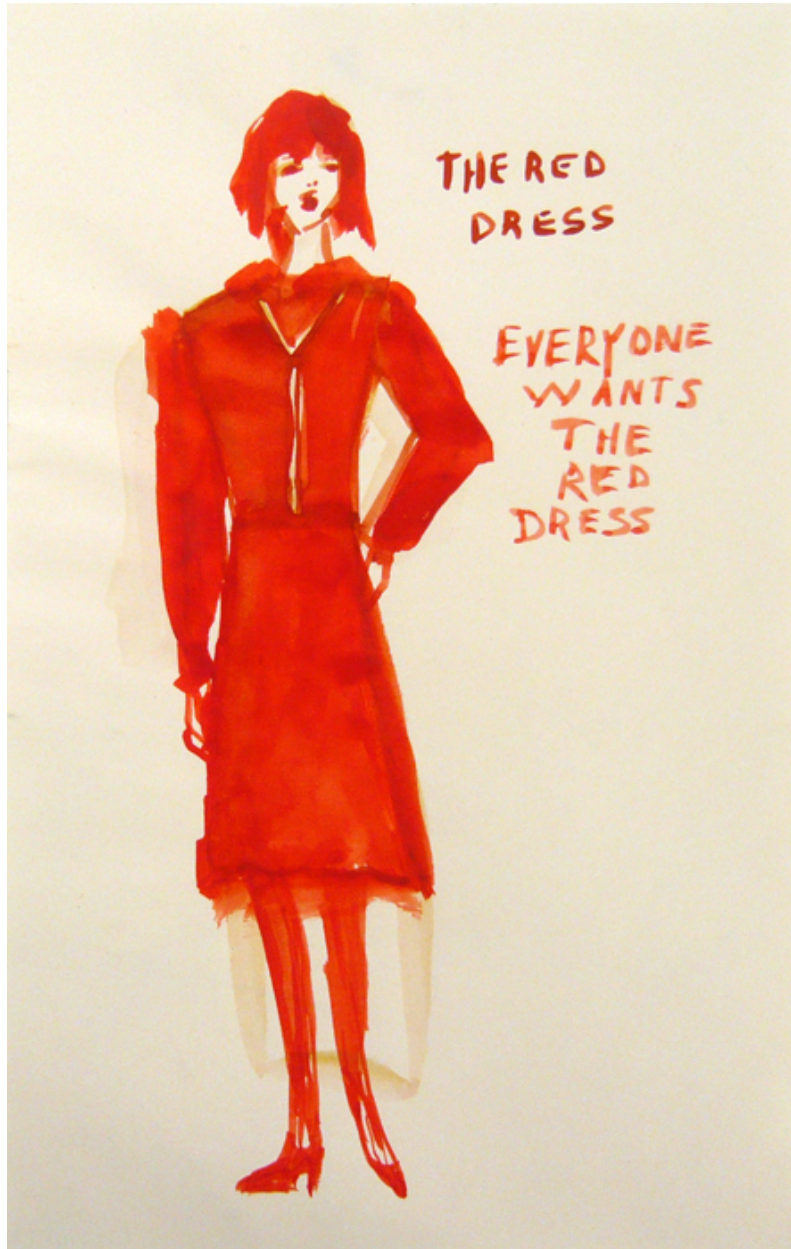 THE RED
DRESS
EVERYONE
WANTS
THE
RED
DRESS